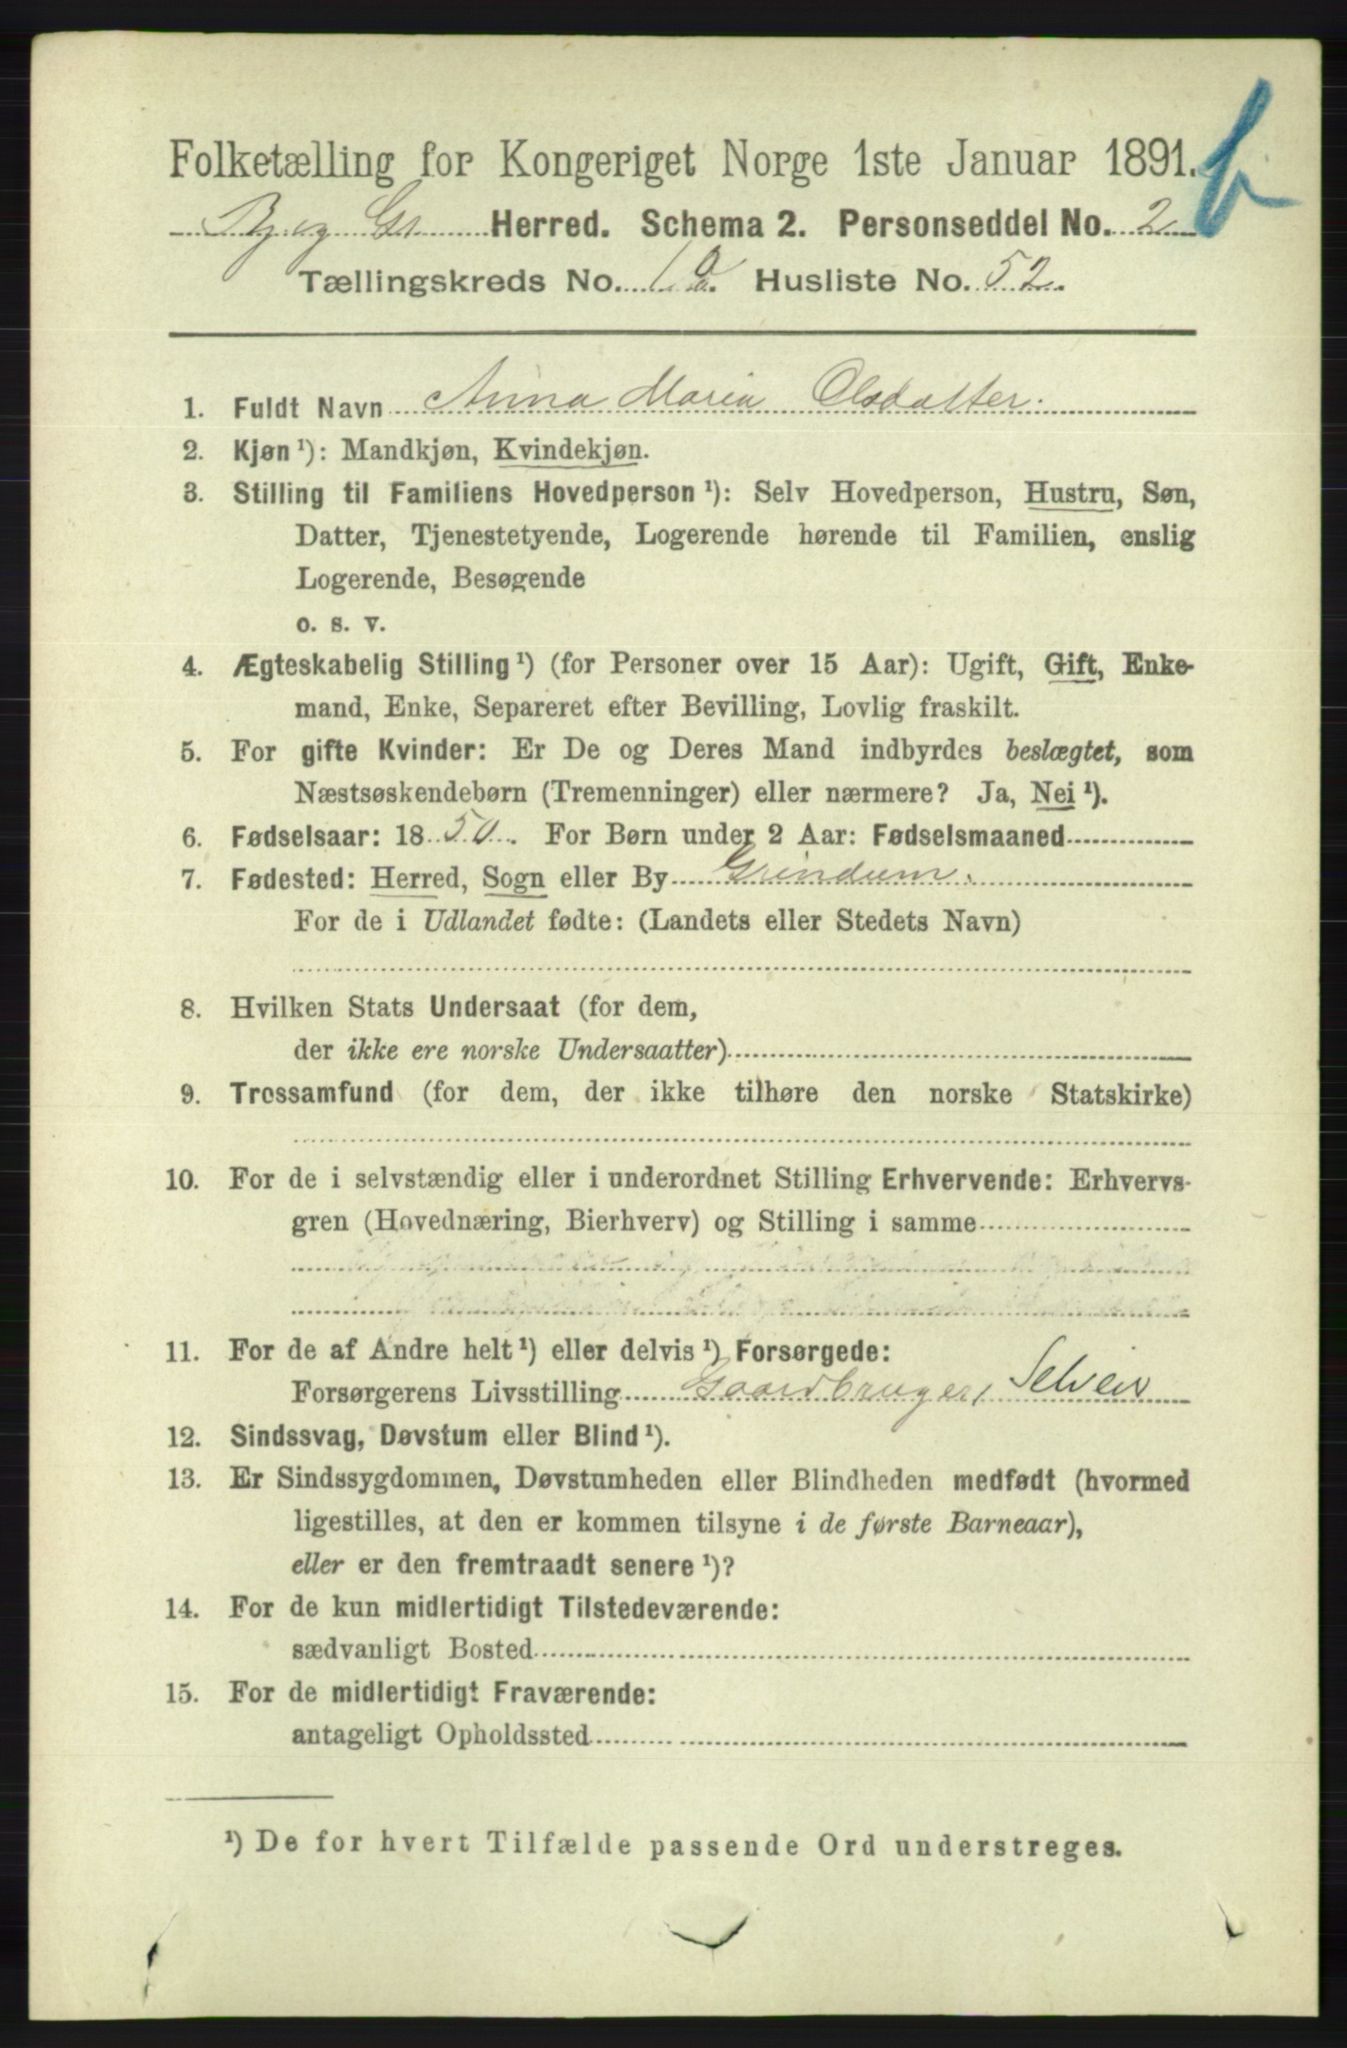 Folketælling for Kongeriget Norge 1ste Januar 1891.
Bj. og Gr. Herred. Schema 2. Personseddel No. 2
Tællingskreds No. 1a. Husliste No. 52.
1. Fuldt Navn Anna Maria Olsdatter.
2. Kjøn ¹): Mandkjøn, Kvindekjøn.
3. Stilling til Familiens Hovedperson ¹): Selv Hovedperson, Hustru, Søn,
Datter, Tjenestetyende, Logerende hørende til Familien, enslig
Logerende, Besøgende
o. s. v.
4. Ægteskabelig Stilling ¹) (for Personer over 15 Aar): Ugift, Gift, Enke-
mand, Enke, Separeret efter Bevilling, Lovlig fraskilt.
5. For gifte Kvinder: Er De og Deres Mand indbyrdes beslægtet, som
Næstsøskendebørn (Tremenninger) eller nærmere? Ja, Nei ¹).
6. Fødselsaar: 1850. For Børn under 2 Aar: Fødselsmaaned
7. Fødested: Herred, Sogn eller By Grindum.
For de i Udlandet fødte: (Landets eller Stedets Navn)
8. Hvilken Stats Undersaat (for dem,
der ikke ere norske Undersaatter)
9. Trossamfund (for dem, der ikke tilhøre den norske Statskirke)
10. For de i selvstændig eller i underordnet Stilling Erhvervende: Erhvervs-
gren (Hovednæring, Bierhverv) og Stilling i samme
11. For de af Andre helt ¹) eller delvis ¹) Forsørgede:
Forsørgerens Livsstilling Gaardbruger, Selveier
12. Sindssvag, Døvstum eller Blind ¹).
13. Er Sindssygdommen, Døvstumheden eller Blindheden medfødt (hvormed
ligestilles, at den er kommen tilsyne i de første Barneaar),
eller er den fremtraadt senere ¹)?
14. For de kun midlertidigt Tilstedeværende:
sædvanligt Bosted
15. For de midlertidigt Fraværende:
antageligt Opholdssted
¹) De for hvert Tilfælde passende Ord understreges.